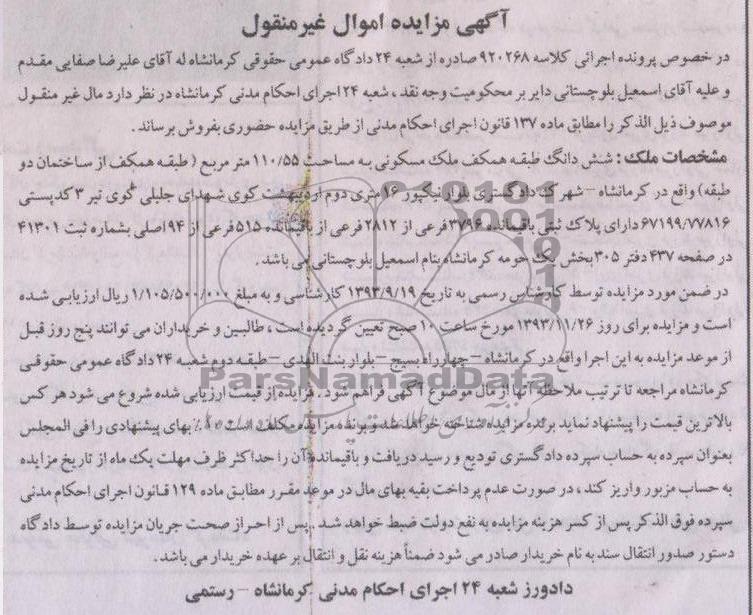 آگهی مزایده اموال غیرمنقول
در خصوص پرونده اجرائی کلاسه ۹۲۰۲۶۸ صادره از شعبه ۲۴ دادگاه عمومی حقوقی کرمانشاه له آقای علیرضا صفایی مقدم
و علیه آقای اسمعیل بلوچستانی دایر بر محکومیت وجه نقد ، شعبه ۲۴ اجرای احکام مدنی کرمانشاه در نظر دارد مال غیر منقول
موصوف ذیل الذکر را مطابق ماده ۱۳۷ قانون اجرای احکام مدنی از طریق مزایده حضوری بفروش برساند .
مشخصات ملک : شش دانگ طبقه همکف ملک مسکونی به مساحت ۱۱۰/۵۵ متر مربع ( طبقه همکف از ساختمان دو
طبقه) واقع در کرمانشاه – شهرک دادگستری بلوار نیکپور ۱۶ متری دوم اردیبهشت کوی شهدای جلیلی کوی تیر ۳ کدپستی
۶۷۱۹۹/۷۷۸۱۶ دارای پلاک ثبتی باقیمانده ۳۷۹۴ فرعی از ۲۸۱۲ فرعی از باقیمانده ۵۱۵ فرعی از ۹۴ اصلی بشماره ثبت ۴۱۳۰۱
در صفحه ۴۳۷ دفتر ۳۰۵ بخش یک حومه کرمانشاه بنام اسمعیل بلوچستانی می باشد .
در ضمن مورد مزایده توسط کارشناس رسمی به تاریخ ۱۳۹۳/۹/۱۹ کارشناسی و به مبلغ ۱/۱۰۵/۵۰۰/۰۰۰ ریال ارزیابی شده
است و مزایده برای روز ۱۳۹۳/۱۱/۲۶ مورخ ساعت ۱۰ صبح تعیین گردیده است ، طالبین و خریداران می توانند پنج روز قبل
از موعد مزایده به این اجرا واقع در کرمانشاه – چهارراه بسیج – بلوار بنت الهدی – طبقه دوم شعبه ۲۴ دادگاه عمومی حقوقی
کرمانشاه مراجعه تا ترتیب ملاحظه آنها از مال موضوع آگهی فراهم شود . مزایده از قیمت ارزیابی شده شروع می شود هر کس
بالاترین قیمت را پیشنهاد نماید برنده مزایده شناخته خواهد شد و برنده مزایده مکلف است ۱۰٪ بهای پیشنهادی را فی المجلس
بعنوان سپرده به حساب سپرده دادگستری تودیع و رسید دریافت و باقیمانده آن را حداکثر ظرف مهلت یک ماه از تاریخ مزایده
به حساب مزبور واریز کند ، در صورت عدم پرداخت بقیه بهای مال در موعد مقرر مطابق ماده ۱۲۹ قانون اجرای احکام مدنی
سپرده فوق الذکر پس از کسر هزینه مزایده به نفع دولت ضبط خواهد شد . پس از احراز صحت جریان مزایده توسط دادگاه
دستور صدور انتقال سند به نام خریدار صادر می شود ضمناً هزینه نقل و انتقال بر عهده خریدار می باشد .
دادورز شعبه ۲۴ اجرای احکام مدنی کرمانشاه – رستمی
ParsNamadData